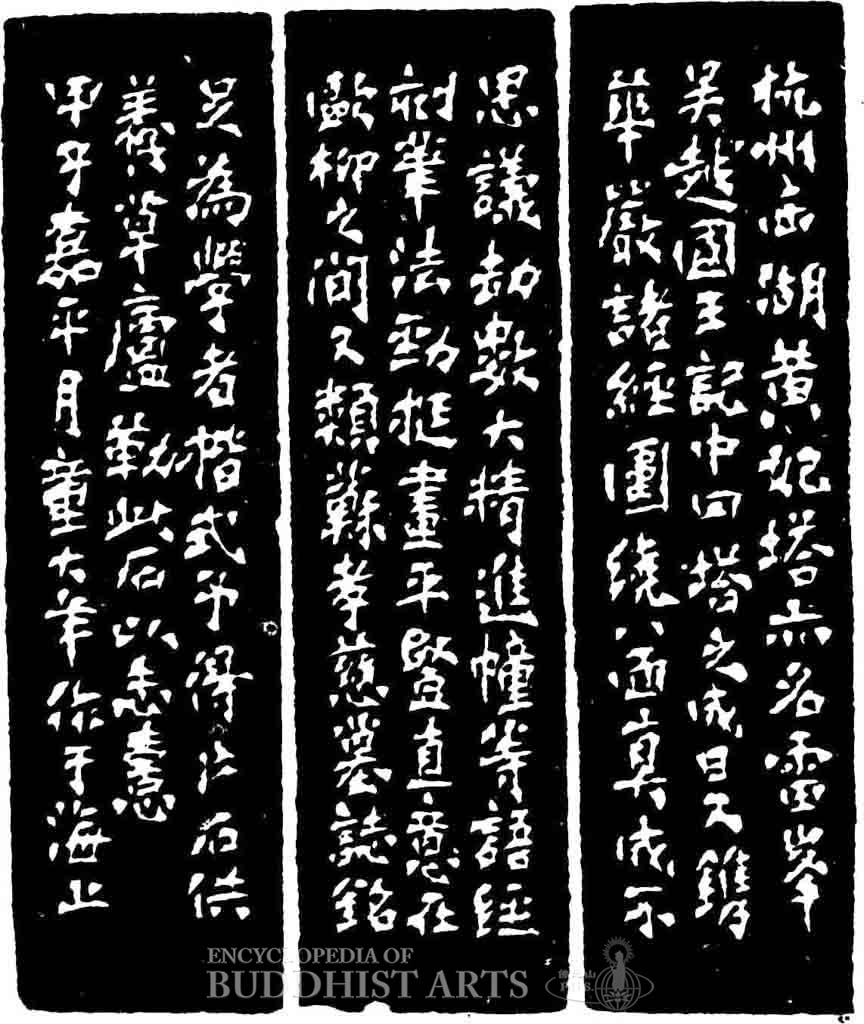 杭州西湖黃妃塔亦名雷峯
吳越國王記中曰塔之成日又鐫
華嚴諸經圍繞八面真成不
思議劫數大精進幢等語經
刻筆法勁挺畫平豎直意在
歐柳之間又類蘇孝慈墓誌銘
足為學者楷式予得片石供
義草廬勒此石以志憙
甲子嘉平月童大年作于海上
ENCYCLOPEDIA OF
BUDDHIST ARTS